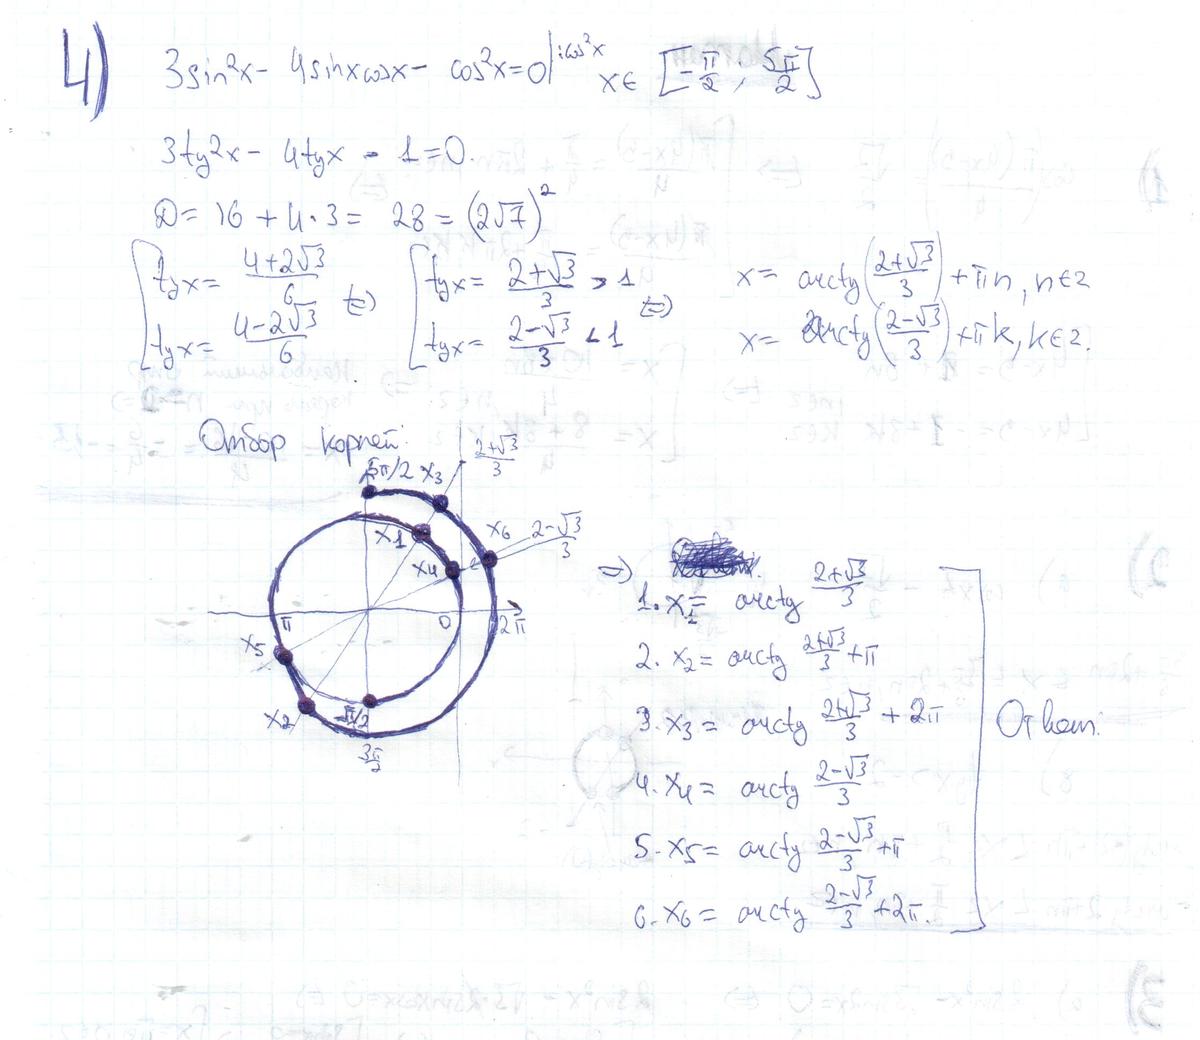 4)
3sin²x - 4sinxcosx - cos²x = 0 | :cos²x x ∈ [-π/2 ; 5π/2]
3tg²x - 4tgx - 1 = 0.
D = 16 + 4·3 = 28 = (2√7)²
[ tgx = (4+2√3)/6 ⇔ [ tgx = (2+√3)/3 > 1 ⇔ x = arctg((2+√3)/3) + πn, n∈z
tgx = (4-2√3)/6 tgx = (2-√3)/3 < 1 x = arctg((2-√3)/3) + πk, k∈z.
Отбор корней:
(2+√3)/3
5π/2 x3
x1 x6 (2-√3)/3
x4
π 0 2π
x5
x2 -π/2
3π/2
⇒ 1. x1 = arctg (2+√3)/3
2. x2 = arctg (2+√3)/3 + π
3. x3 = arctg (2+√3)/3 + 2π
4. x4 = arctg (2-√3)/3
5. x5 = arctg (2-√3)/3 + π
6. x6 = arctg (2-√3)/3 + 2π.
] Ответ.